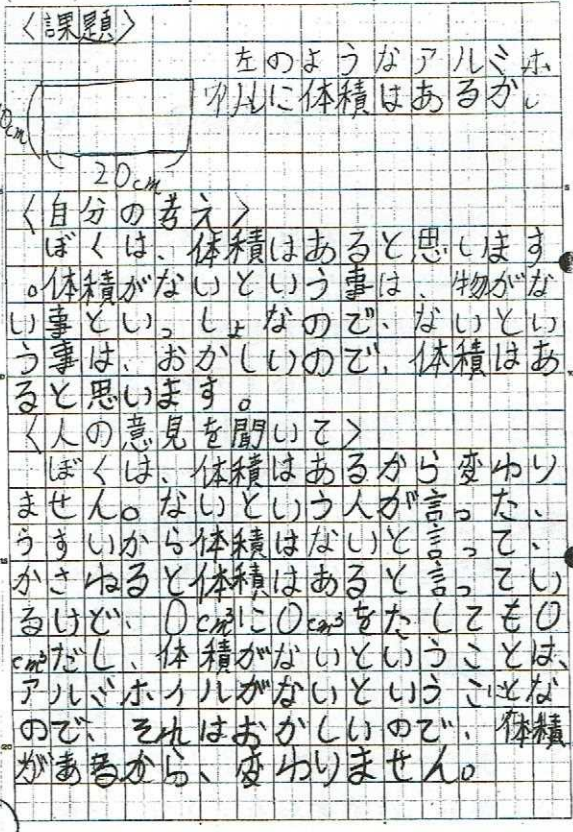 〈課題〉
左のようなアルミホ
イルに体積はあるか。
0cm
20cm
〈自分の考え〉
ぼくは、体積はあると思います
。体積がないという事は、物がな
い事といっしょなので、ないとい
う事は、おかしいので、体積はあ
ると思います。
〈人の意見を聞いて〉
ぼくは、体積はあるから変わり
ません。ないという人が言った、
うすいから体積はないと言って、
かさねると体積はあると言ってい
るけど、0cm³に0cm³をたしても0
cm³だし、体積がないということは、
アルミホイルがないということな
ので、それはおかしいので、体積
があるから、変わりません。